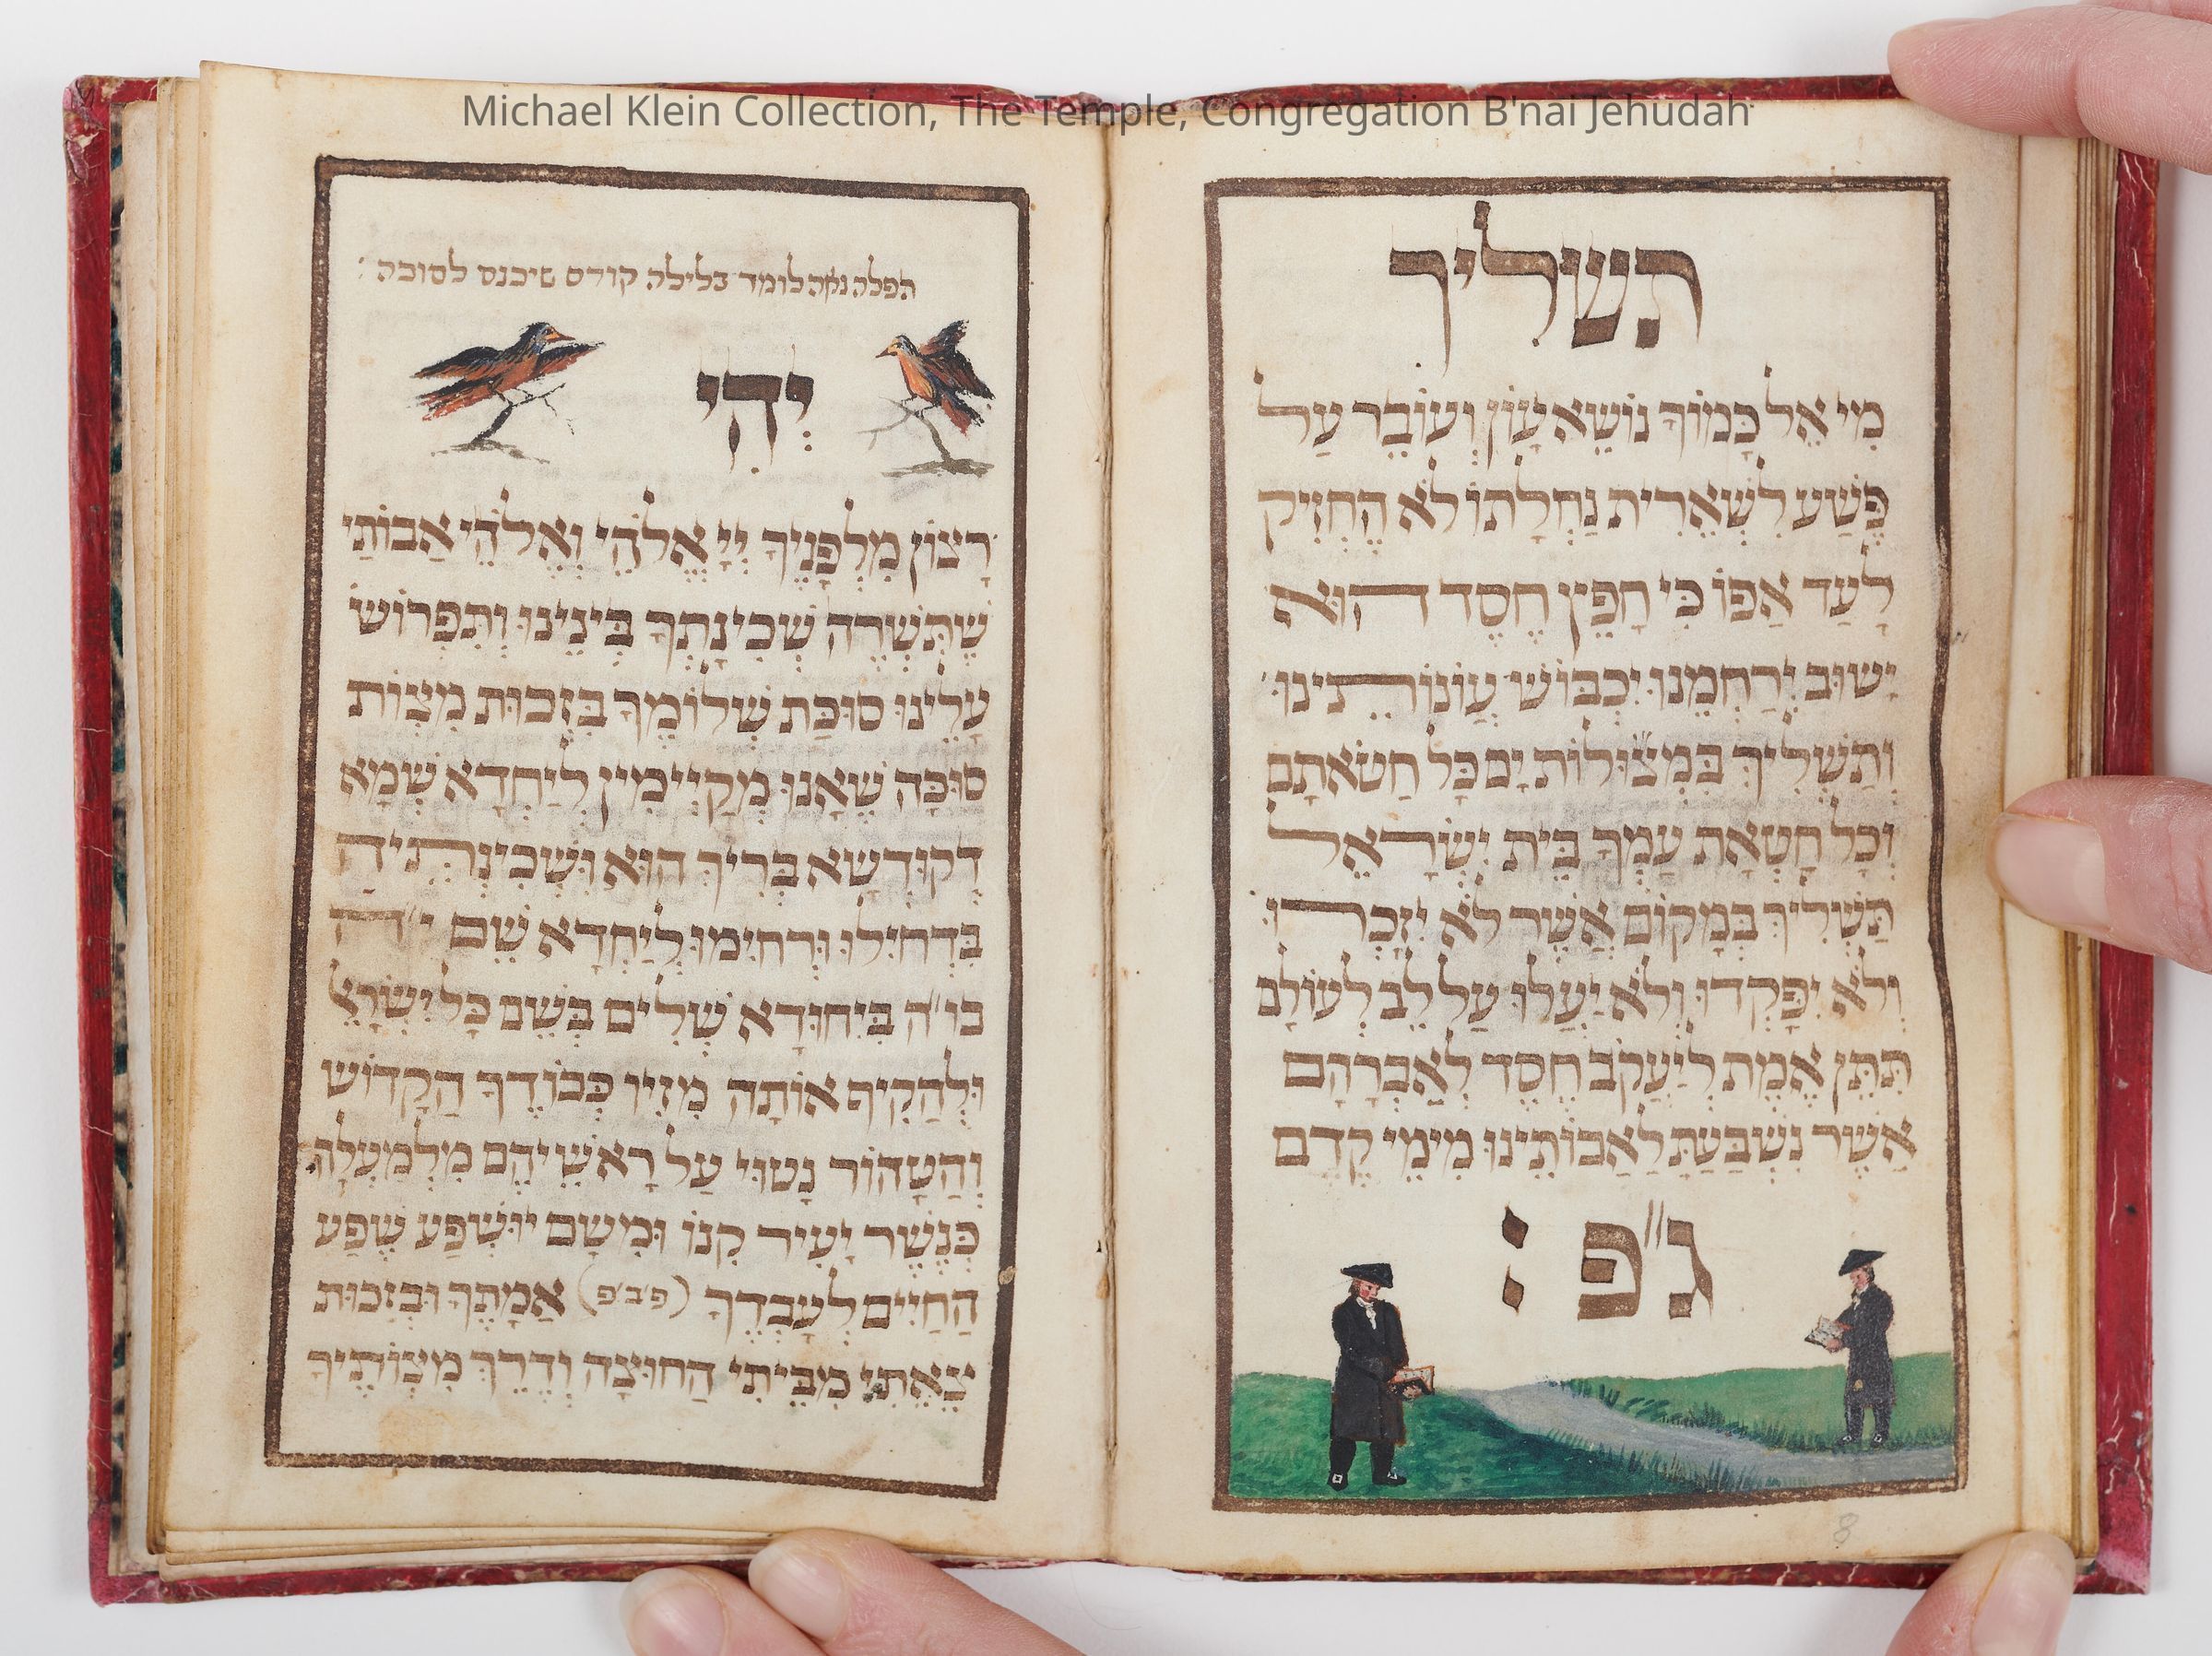 Michael Klein Collection, The Temple, Congregation B'nai Jehudah
תשליך
מִי אֵל כָּמוֹךָ נוֹשֵׂא עָוֹן וְעוֹבֵר עַל
פֶּשַׁע לִשְׁאֵרִית נַחְלָתוֹ לֹא הֶחֱזִיק
לָעַד אַפּוֹ כִּי חָפֵץ חֶסֶד הוּא
יָשׁוּב יְרַחֲמֵנוּ יִכְבּוֹשׁ עֲוֹנוֹתֵינוּ
וְתַשְׁלִיךְ בִּמְצוּלוֹת יָם כָּל חַטֹּאתָם
וְכָל חַטֹּאת עַמְּךָ בֵּית יִשְׂרָאֵל
תַּשְׁלִיךְ בְּמָקוֹם אֲשֶׁר לֹא יִזָּכְרוּ
וְלֹא יִפָּקְדוּ וְלֹא יַעֲלוּ עַל לֵב לְעוֹלָם
תִּתֵּן אֱמֶת לְיַעֲקֹב חֶסֶד לְאַבְרָהָם
אֲשֶׁר נִשְׁבַּעְתָּ לַאֲבוֹתֵינוּ מִימֵי קֶדֶם
ג"פ :
8
תפלה נאה לומד בלילה קודם שיכנס לסוכה :
יְהִי
רָצוֹן מִלְּפָנֶיךָ יְיָ אֱלֹהַי וֵאלֹהֵי אֲבוֹתַי
שֶׁתַּשְׁרֶה שְׁכִינָתְךָ בֵּינֵינוּ וְתִפְרוֹשׂ
עָלֵינוּ סוּכַּת שְׁלוֹמֶךָ בִּזְכוּת מִצְוֹת
סוּכָּה שֶׁאָנוּ מְקַיְּימִין לְיַחֲדָא שְׁמָא
דְקוּדְשָׁא בְּרִיךְ הוּא וּשְׁכִינְתֵּיהּ
בִּדְחִילוּ וּרְחִימוּ לְיַחֲדָא שֵׁם י"ה
בו"ה בְּיִחוּדָא שְׁלִים בְּשֵׁם כָּל יִשְׂרָאֵל
וּלְהַקִּיף אוֹתָהּ מִזִּיו כְּבוֹדֶךָ הַקָּדוֹשׁ
וְהַטָּהוֹר נָטוּי עַל רָאשֵׁיהֶם מִלְמַעְלָה
כְּנֶשֶׁר יָעִיר קִנּוֹ וּמִשָּׁם יוּשְׁפַּע שֶׁפַע
הַחַיִּים לְעַבְדֶּךָ (פ׳ב׳פ) אֲמָתֶךָ וּבִזְכוּת
צֵאתִי מִבֵּיתִי הַחוּצָה וְדֶרֶךְ מִצְוֹתֶיךָ